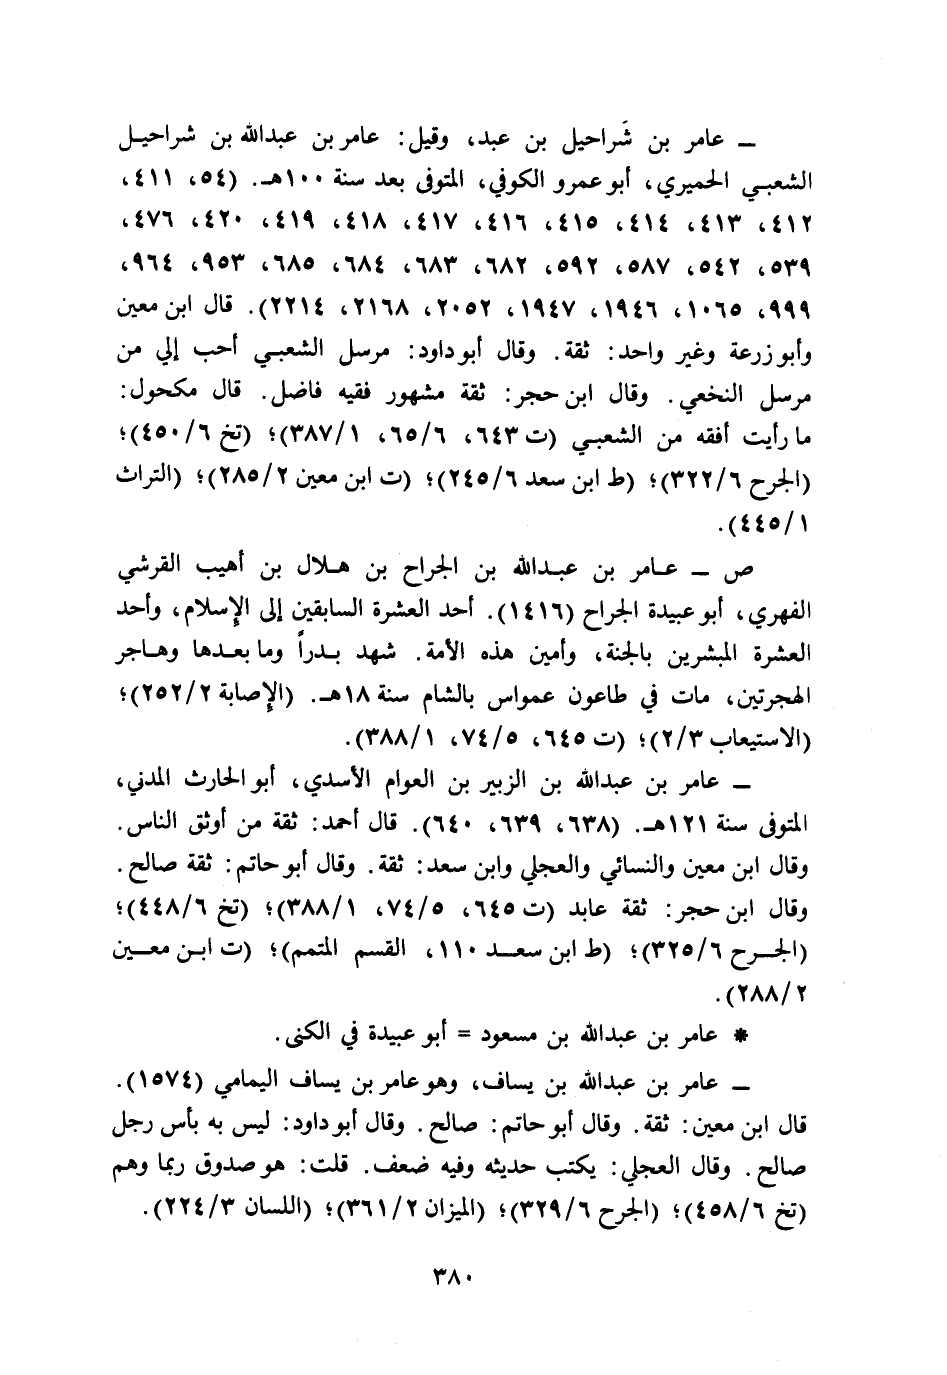 ــ عامر بن شَراحيل بن عبد، وقيل: عامر بن عبدالله بن شراحيـل
الشعبـي الحميري، أبو عمرو الكوفي، المتوفى بعد سنة ١٠٠هـ. (٥٤، ٤١١،
٤١٢، ٤١٣، ٤١٤، ٤١٥، ٤١٦، ٤١٧، ٤١٨، ٤١٩، ٤٢٠، ٤٧٦،
٥٣٩، ٥٤٢، ٥٨٧، ٥٩٢، ٦٨٢، ٦٨٣، ٦٨٤، ٦٨٥، ٩٥٣، ٩٦٤،
٩٩٩، ١٠٦٥، ١٩٤٦، ١٩٤٧، ٢٠٥٢، ٢١٦٨، ٢٢١٤). قال ابن معين
وأبو زرعة وغير واحد: ثقة. وقال أبو داود: مرسل الشعبـي أحب إلي من
مرسل النخعي. وقال ابن حجر: ثقة مشهور فقيه فاضل. قال مكحول:
ما رأيت أفقه من الشعبـي (ت ٦٤٣، ٦٥/٦، ٣٨٧/١)؛ (تخ ٤٥٠/٦)؛
(الجرح ٣٢٢/٦)؛ (ط ابن سعد ٢٤٥/٦)؛ (ت ابن معين ٢٨٥/٢)؛ (التراث
٤٤٥/١).
ص ــ عـامر بن عبـدالله بن الجراح بن هـلال بن أهيب القرشي
الفهري، أبو عبيدة الجراح (١٤١٦). أحد العشرة السابقين إلى الإسلام، وأحد
العشرة المبشرين بالجنة، وأمين هذه الأمة. شهد بـدراً وما بعـدها وهـاجر
الهجرتين، مات في طاعون عمواس بالشام سنة ١٨هـ. (الإصابة ٢٥٢/٢)؛
(الاستيعاب ٢/٣)؛ (ت ٦٤٥، ٧٤/٥، ٣٨٨/١).
ــ عامر بن عبدالله بن الزبير بن العوام الأسدي، أبو الحارث المدني،
المتوفى سنة ١٢١هـ. (٦٣٨، ٦٣٩، ٦٤٠). قال أحمد: ثقة من أوثق الناس.
وقال ابن معين والنسائي والعجلي وابن سعد: ثقة. وقال أبو حاتم: ثقة صالح.
وقال ابن حجر: ثقة عابد (ت ٦٤٥، ٧٤/٥، ٣٨٨/١)؛ (تخ ٤٤٨/٦)؛
(الجـرح ٣٢٥/٦)؛ (ط ابن سعـد ١١٠، القسم المتمم)؛ (ت ابـن معـين
٢٨٨/٢).
* عامر بن عبدالله بن مسعود = أبو عبيدة في الكنى.
ــ عامر بن عبدالله بن يساف، وهو عامر بن يساف اليمامي (١٥٧٤).
قال ابن معين: ثقة. وقال أبو حاتم: صالح. وقال أبو داود: ليس به بأس رجل
صالح. وقال العجلي: يكتب حديثه وفيه ضعف. قلت: هو صدوق ربما وهم
(تخ ٤٥٨/٦)؛ (الجرح ٣٢٩/٦)؛ (الميزان ٣٦١/٢)؛ (اللسان ٢٢٤/٣).
٣٨٠